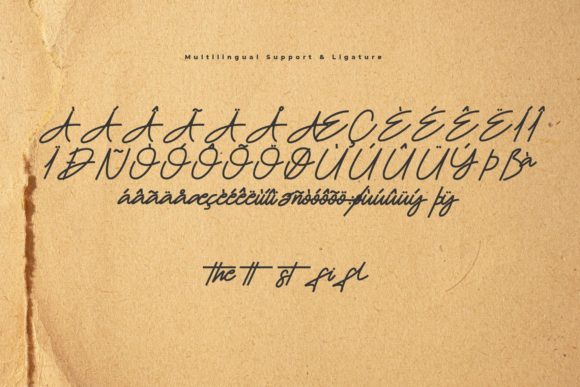 Multilingual Support & Ligature
À Á Â Ã Ä Å Æ Ç È É Ê Ë Ì Í Î
Ï Ð Ñ Ò Ó Ô Õ Ö Ø Ù Ú Û Ü Ý Þ ß à
á â ã ä å æ ç è é ê ë ì í î ï ð ñ ò ó ô õ ö ÷ ø ù ú û ü ý þ ÿ
the tt st fi fl